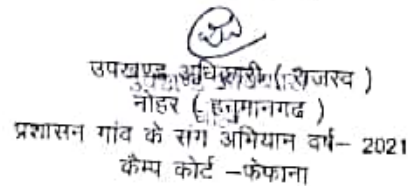 उपखण्ड अधिकारी ( राजस्व )
नोहर ( हनुमानगढ )
प्रशासन गांव के संग अभियान वर्ष– 2021
कैम्प कोर्ट –फेफाना